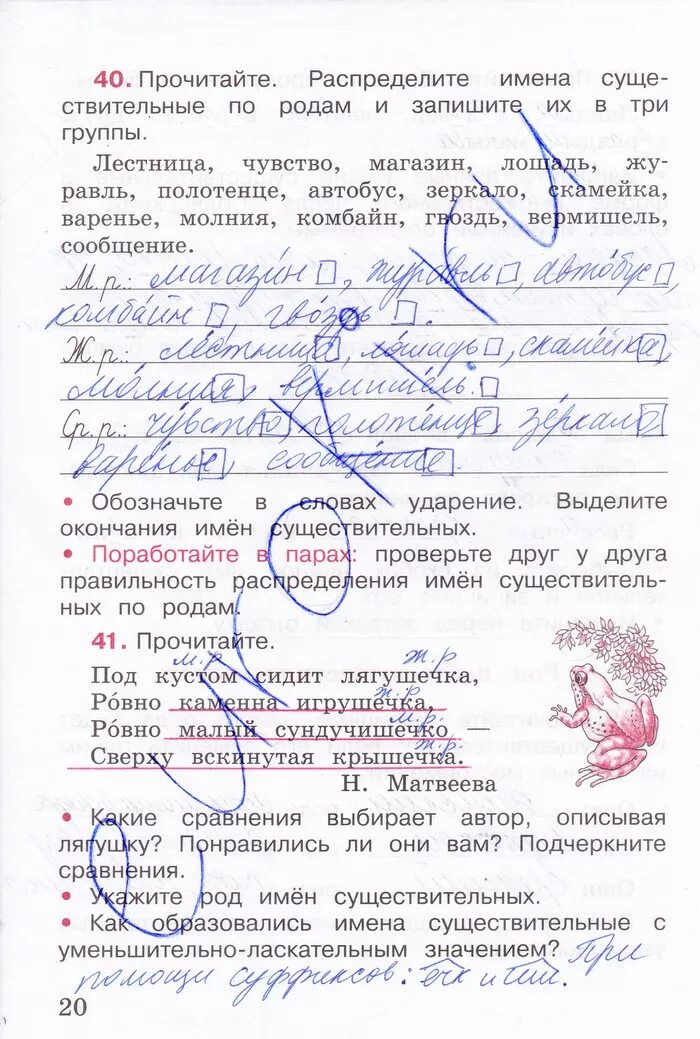 40. Прочитайте. Распределите имена суще-
ствительные по родам и запишите их в три
группы.
Лестница, чувство, магазин, лошадь, жу-
равль, полотенце, автобус, зеркало, скамейка,
варенье, молния, комбайн, гвоздь, вермишель,
сообщение.
М. р.: магази́н, жура́вль, авто́бус,
комба́йн, гво́здь.
Ж. р.: ле́стница, ло́шадь, скаме́йка,
мо́лния, вермише́ль.
Ср. р.: чу́вство, полоте́нце, зе́ркало,
варе́нье, сообще́ние.
• Обозначьте в словах ударение. Выделите
окончания имён существительных.
• Поработайте в парах: проверьте друг у друга
правильность распределения имён существитель-
ных по родам.
41. Прочитайте.
м.р ж.р
Под кустом сидит лягушечка,
ж.р
Ро́вно каменна игрушечка,
м.р
Ро́вно малый сундучишечко —
ж.р
Сверху вскинутая крышечка.
Н. Матвеева
• Какие сравнения выбирает автор, описывая
лягушку? Понравились ли они вам? Подчеркните
сравнения.
• Укажите род имён существительных.
• Как образовались имена существительные с
уменьшительно-ласкательным значением? При
помощи суффиксов: ечк и
20